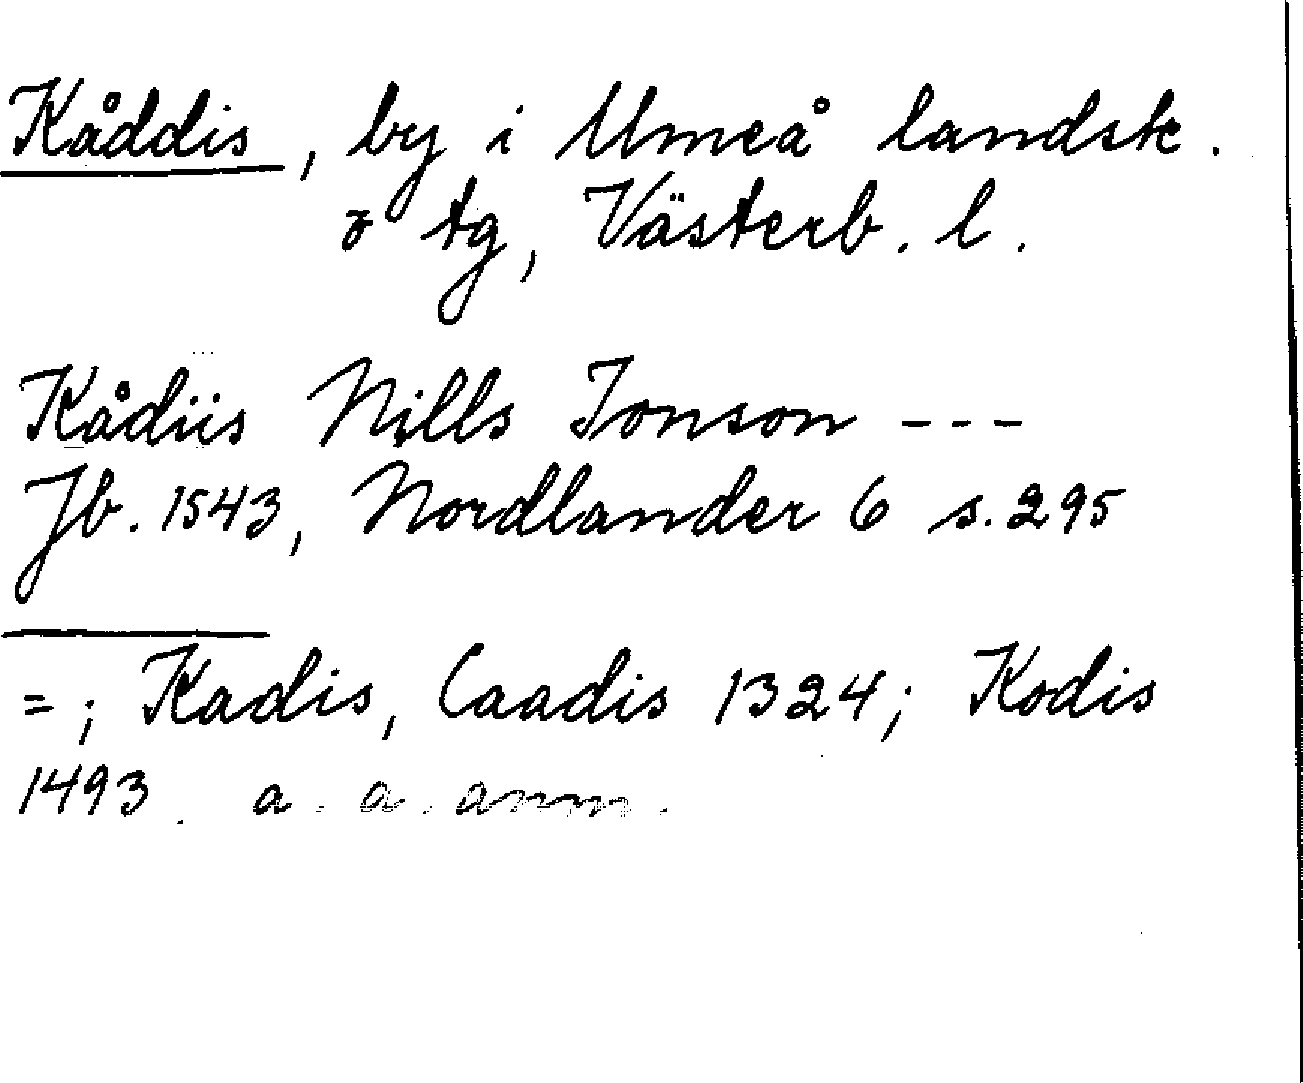 Kåddis, by i Umeå landsk.
o tg, Västerb. l.
Kådiis Nills Jonson ---
Jb. 1543, Nordlander 6 s. 295
=; Kadis, Caadis 1324; Kodis
1493. a. a. anm.